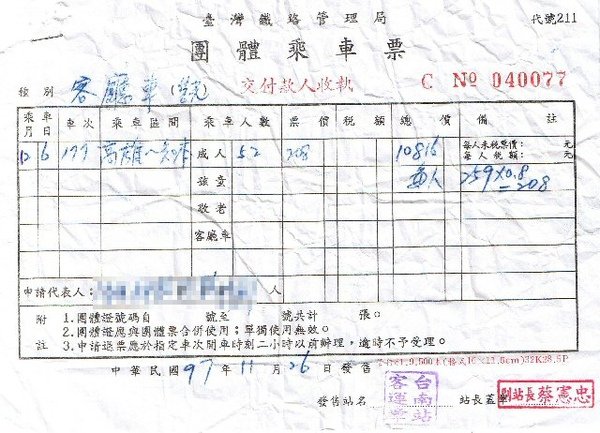 臺灣鐵路管理局 代號211
團體乘車票
種別 客廳車 交付款人收執 C № 040077
乘車月日 車次 乘車區間 乘車人數 票價 稅額 總價 備註
12 6 177 成人 52 208 10816 每人未稅票價: 元
每人稅額: 元
孩童 259×0.8
=208
敬老
客廳車
申請代表人: 人
附註 1.團體證號碼自 號至 號共計 張。
2.團體證應與團體票合併使用;單獨使用無效。
3.申請退票應於指定車次開車時刻二小時以前辦理,逾時不予受理。
中華民國97年11月26日發售
發售站名 台南站客運 站長蓋章 副站長蔡憲忠